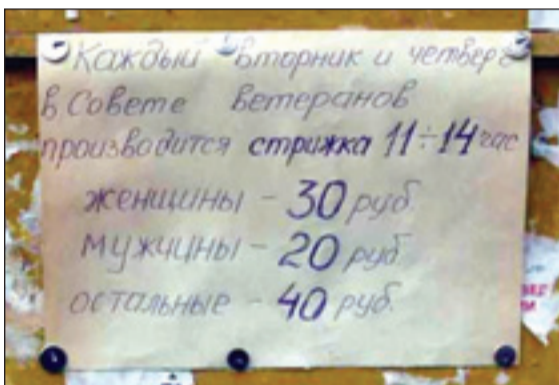 Каждый вторник и четверг
в Совете ветеранов
производится стрижка 11÷14 час
женщины - 30 руб.
мужчины - 20 руб
остальные - 40 руб.